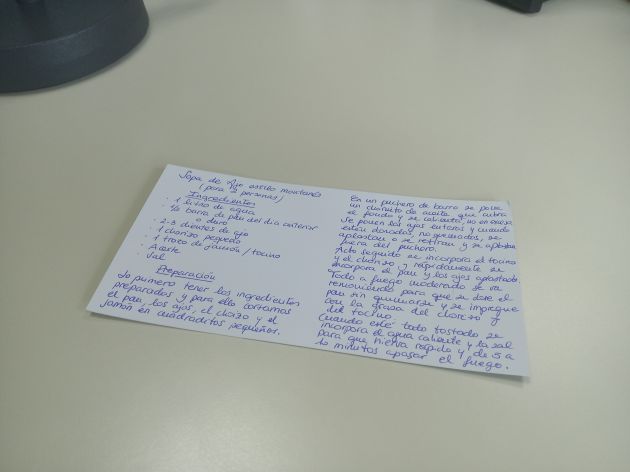 Sopa de Ajo estilo montañés
(para 2 personas)
Ingredientes
· 1 litro de agua
· 1/2 barra de pan del día anterior
o duro
· 2-3 dientes de ajo
· 1 chorizo pequeño
· 1 trozo de jamón / tocino
· Aceite
· Sal
Preparación
Lo primero tener los ingredientes
preparados y para ello cortamos
el pan, los ajos, el chorizo y el
jamón en cuadraditos pequeños.
En un puchero de barro se pone
un chorrito de aceite que cubra
el fondo y se calienta, no en exceso
Se ponen los ajos enteros y cuando
estén dorados, no quemados, se
aplastan o se retiran y se aplastan
fuera del puchero.
Acto seguido se incorpora el tocino
y el chorizo y rápidamente se
incorpora el pan y los ajos aplastados.
Todo a fuego moderado se va
removiendo para que se dore el
pan sin quemarse y se impregne
con la grasa del chorizo y
del tocino.
Cuando esté todo tostado se
incorpora el agua caliente y la sal
para que hierva rápido y de 5 a
10 minutos apagar el fuego.